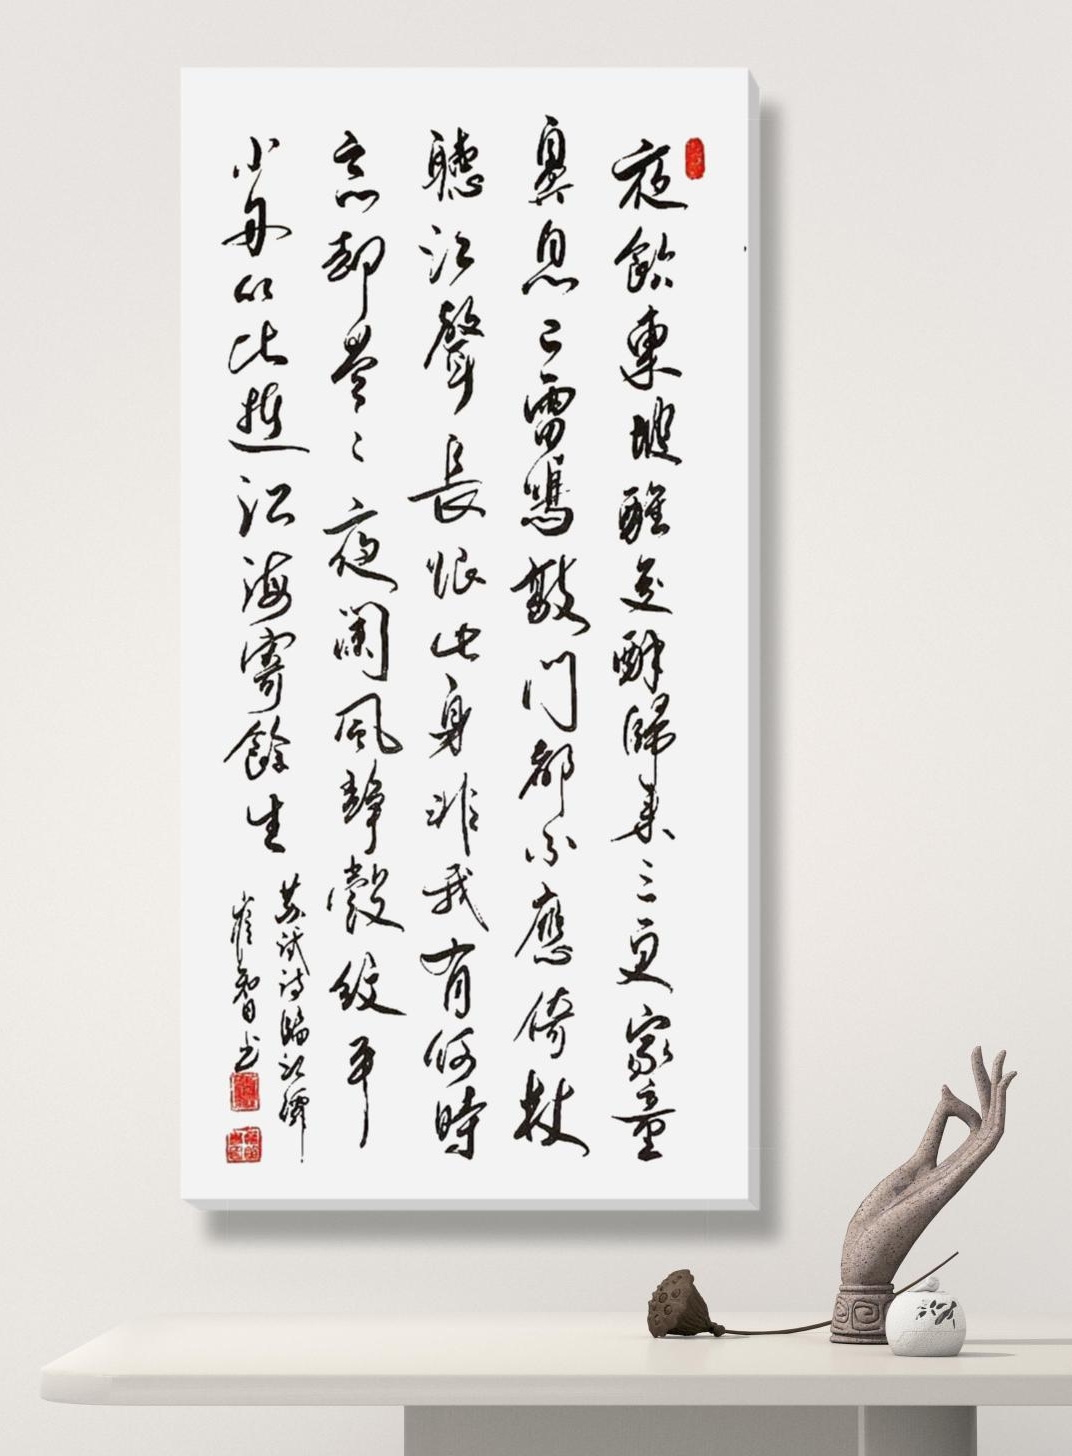 夜飲東坡醒复醉歸来三更家童
鼻息已雷鳴敲門都不應倚杖
聽江聲長恨此身非我有何時
忘却營々夜闌風静縠紋平
小舟从此逝江海寄餘生
苏轼诗临江仙
崔智书